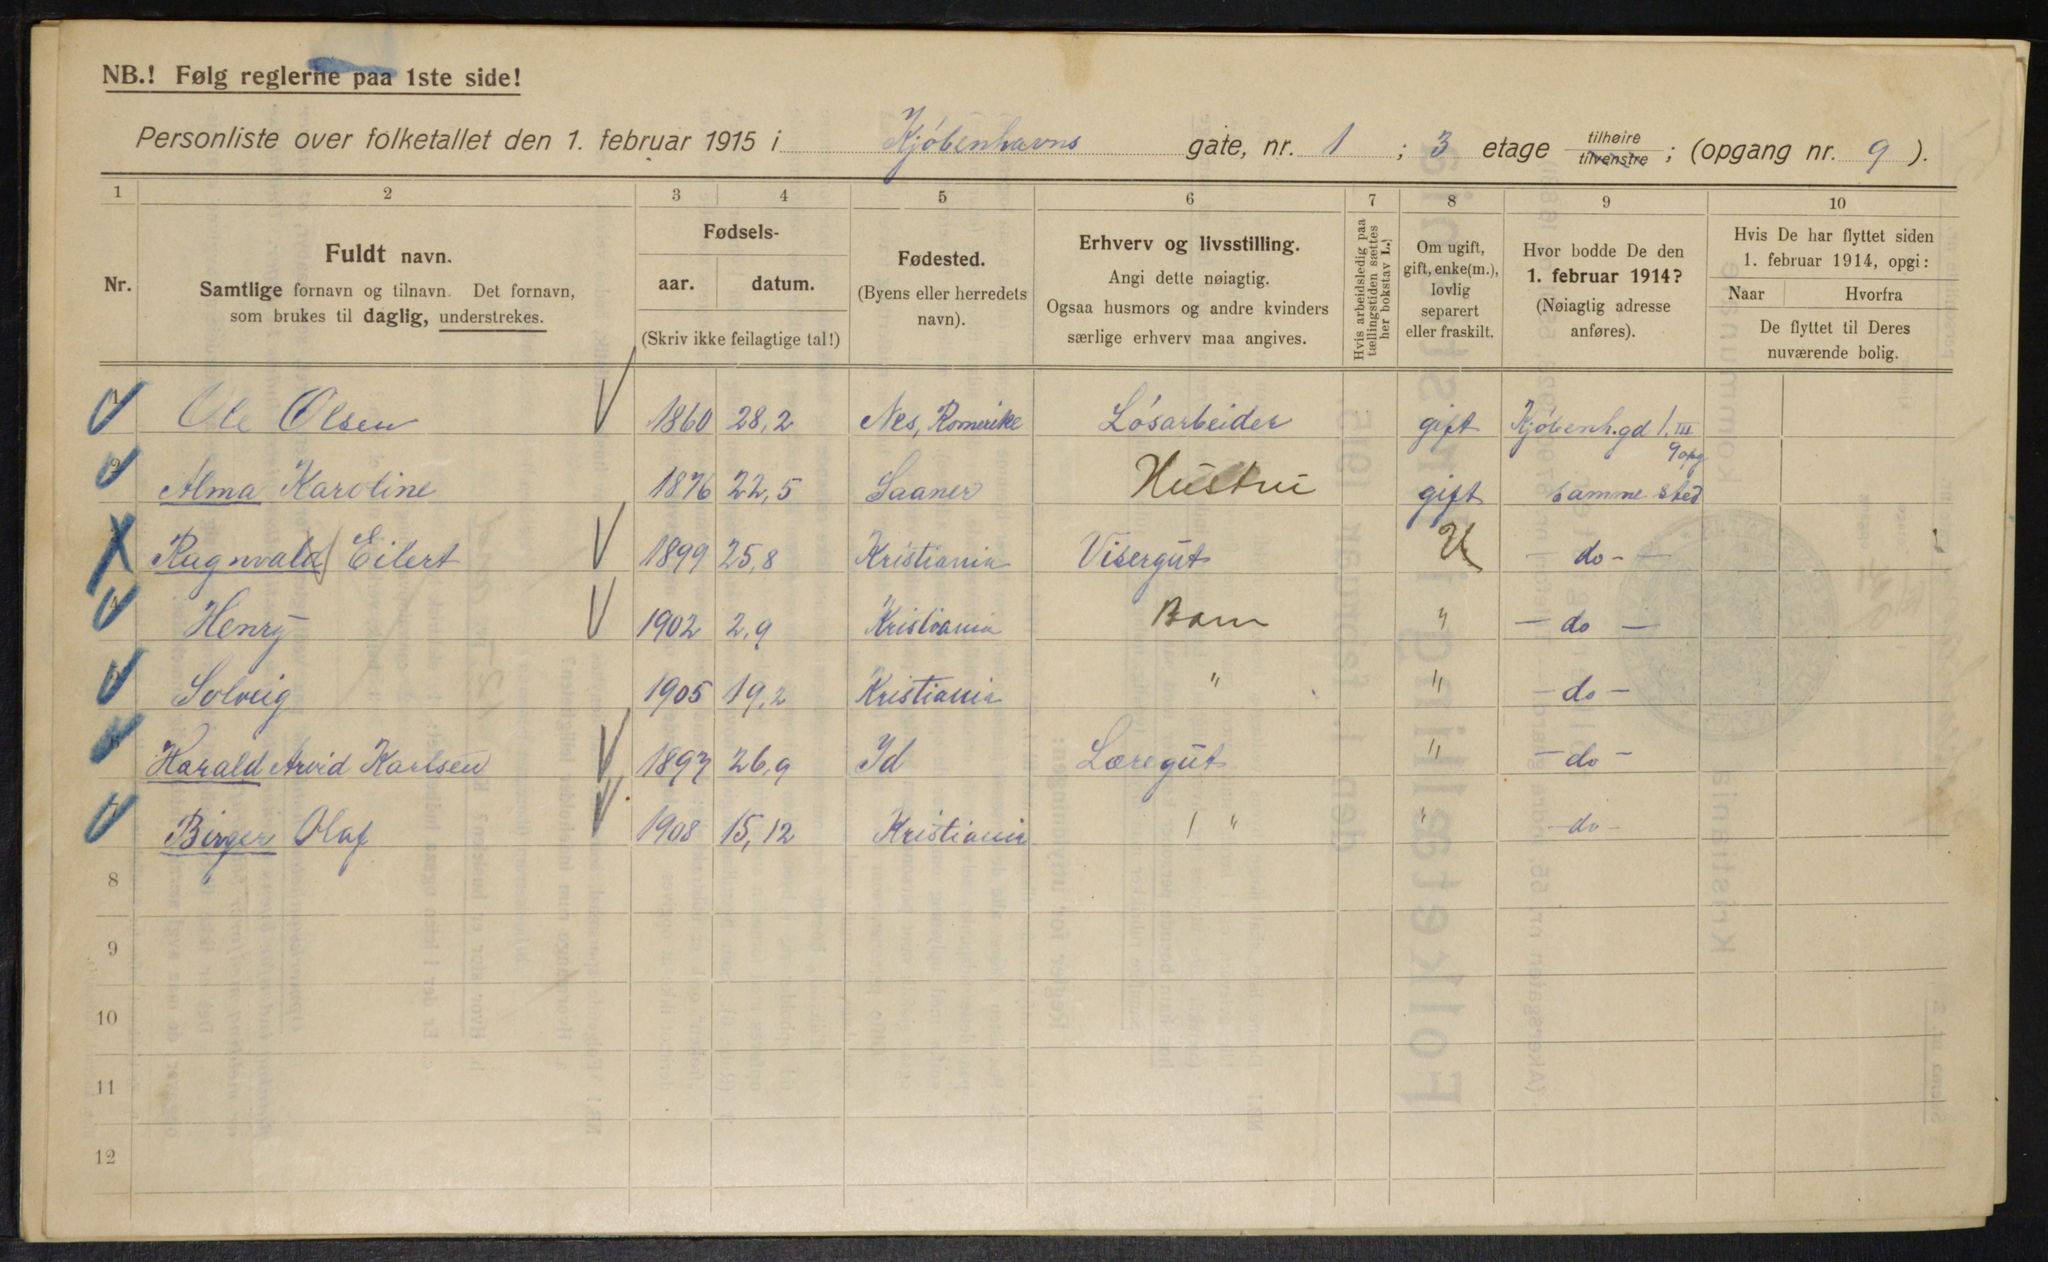 NB.! Følg reglerne paa 1ste side!
Personliste over folketallet den 1. februar 1915 i Kjøbenhavns gate, nr. 1 ; 3 etage tilhøire tilvenstre ; (opgang nr. 9 ).
1 2 3 4 5 6 7 8 9 10
Nr.
Fuldt navn.
Samtlige fornavn og tilnavn. Det fornavn,
som brukes til daglig, understrekes.
Fødsels-
aar. datum.
(Skriv ikke feilagtige tal!)
Fødested.
(Byens eller herredets
navn).
Erhverv og livsstilling.
Angi dette nøiagtig.
Ogsaa husmors og andre kvinders
særlige erhverv maa angives.
Hvis arbeidsledig paa
tællingstiden sættes
her bokstav L.)
Om ugift,
gift, enke(m.),
lovlig
separert
eller fraskilt.
Hvor bodde De den
1. februar 1914?
(Nøiagtig adresse
anføres).
Hvis De har flyttet siden
1. februar 1914, opgi:
Naar Hvorfra
De flyttet til Deres
nuværende bolig.
1 Ole Olsen 1860 28,2 Nes, Romerike Løsarbeider gift Kjøbenh.gd 1. III
9 opg
2 Alma Karoline 1876 22,5 Saaner Hustru gift samme sted
Ragnvald Eilert 1899 25,8 Kristiania Visergut U — do —
4 Henry 1902 2,9 Kristiania Barn " — do —
Solveig 1905 19,2 Kristiania " " — do —
Harald Arvid Karlsen 1897 26,9 Id Læregut " — do —
7 Birger Olaf 1908 15,12 Kristiania / " " — do —
8
9
10
11
12